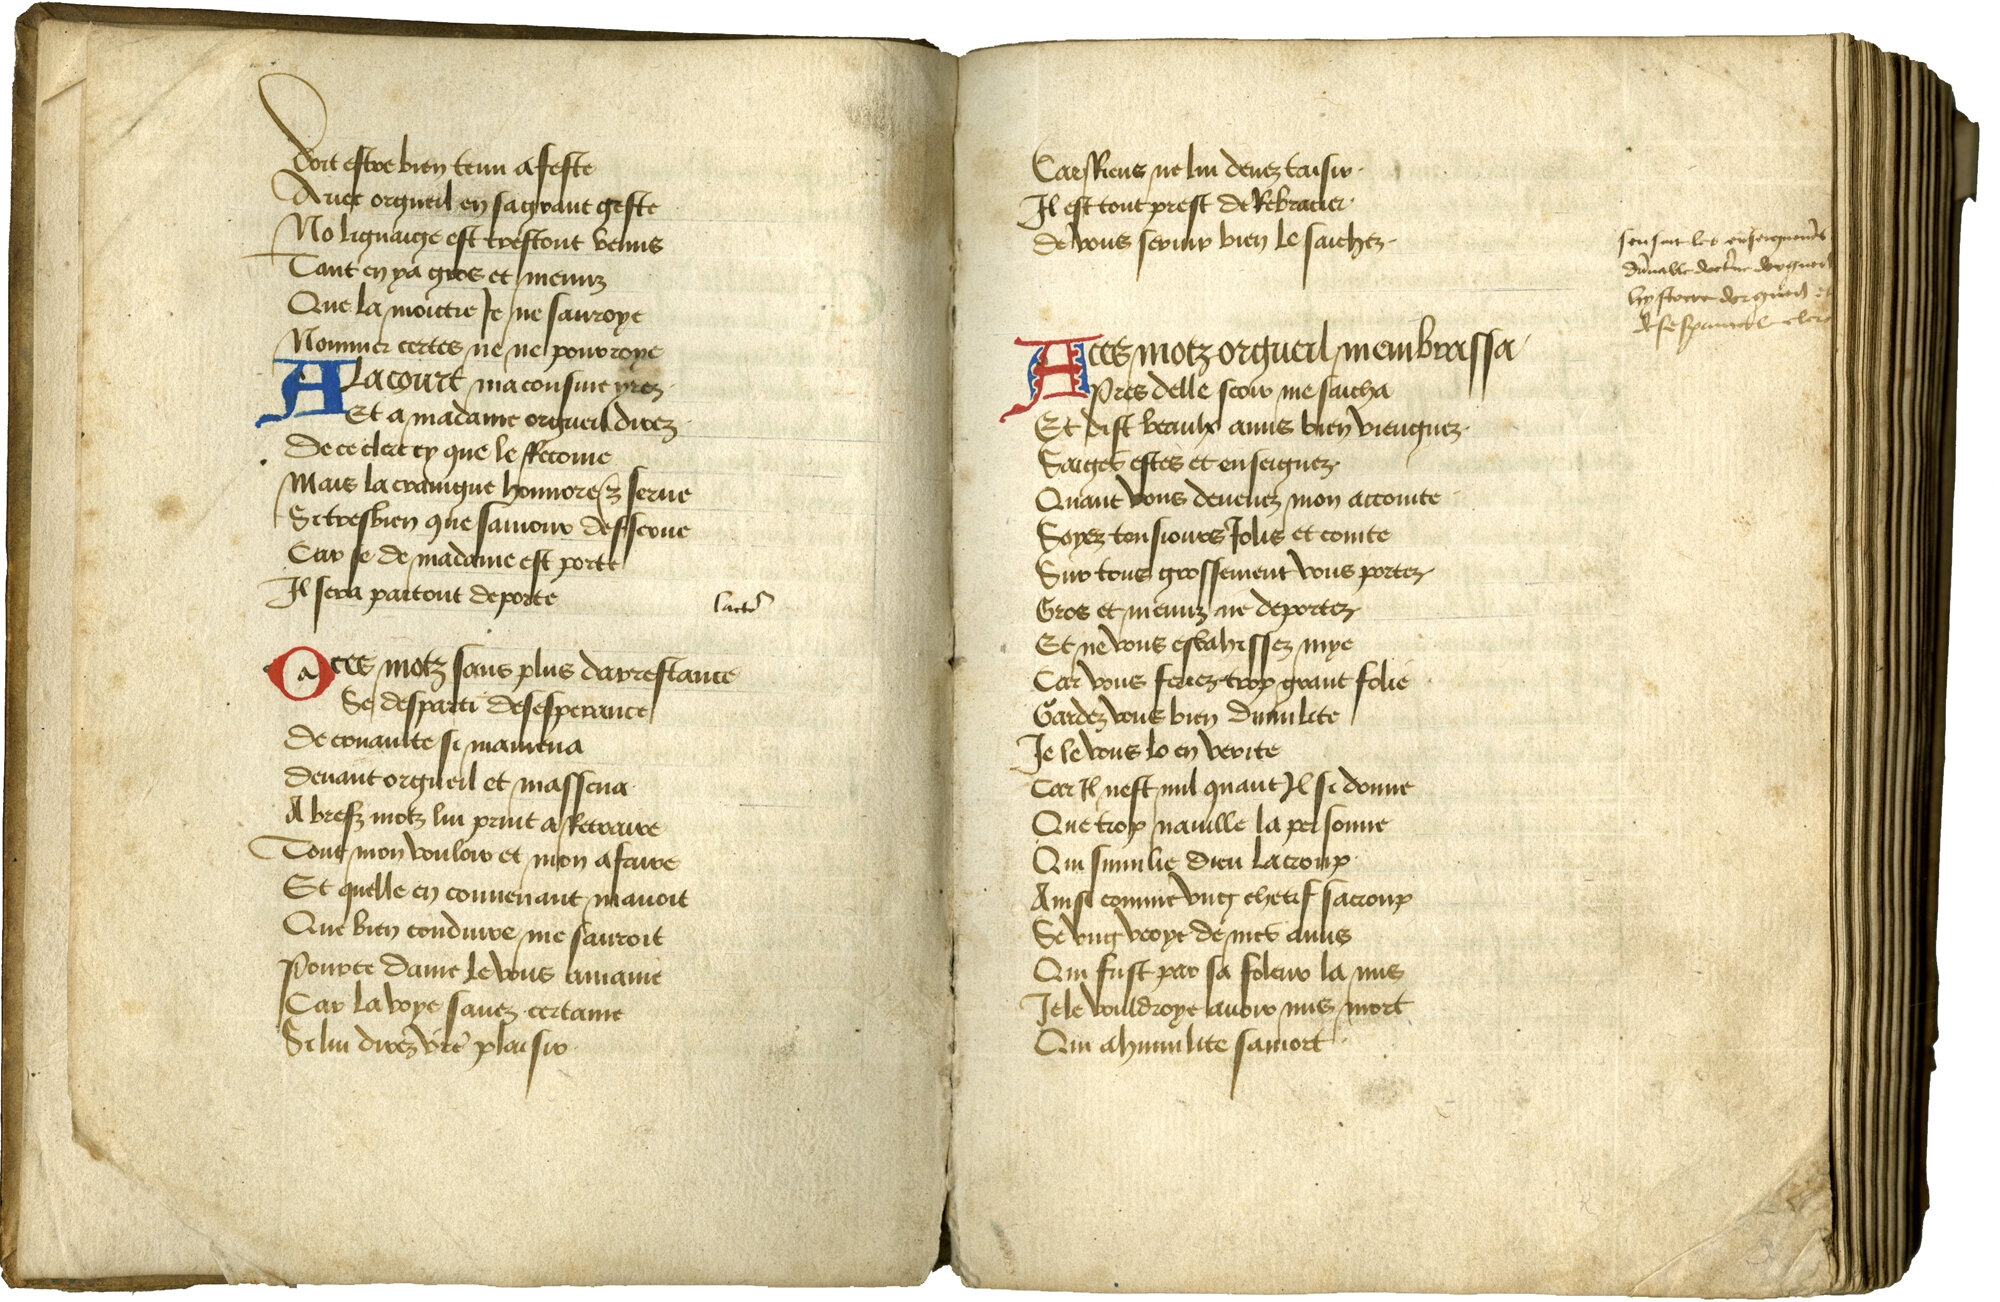 Doit estre bien tenu a feste
Avec orgueil en sa grant geste
No lignaige est trestout venus
Tant en ya gros et menuz
Que la moictie Je ne sauroye
Nommer certes ne ne pourroye
A La court ma cousine yrez
Et a madame orgueil direz
De ce clerc cy que le Recoive
Mais la craingne honnore & serve
Si tresbien que samour desserve
Car se de madame est porte
Il sera partout deporte
lacteur
A ces motz sans plus darrestance
Se desparti desesperance
De convaitise si mamena
Devant orgueil et massena
A briefz motz lui print a Retraire
Tout mon vouloir et mon afaire
Et quelle en convenant mavoit
Que bien conduire me sauroit
Pource dame le vous amaine
Car la voye savez certaine
Si lui direz vre plaisir
Car Riens ne lui devez taisir
Il est tout prest de Rebracier
de vous servir bien le saichez
sensuit les enseignemens
orgueil
A ces motz orgueil membrassa
Pres delle seoir me saicha
Et dist beaulx amis bien viengnez
Saiges estes et enseignez
Quant vous devenez mon accointe
Soyez tousiours Jolis et cointe
Sur tous grossement vous portez
Gros et menuz ne deportez
Et ne vous esbahissez mye
Car vous feriez trop grant folie
Gardez vous bien dumilite
Je le vous lo en verite
Car Il nest nul quant Il si donne
Que trop naville la personne
Qui sumilie dieu lacroup
Ainsi comme ung chetif sacroup
Se ung veoye de mes amis
Qui fust par sa foleur la mis
Je le vouldroye avoir mis mort
Qui a humilite samort